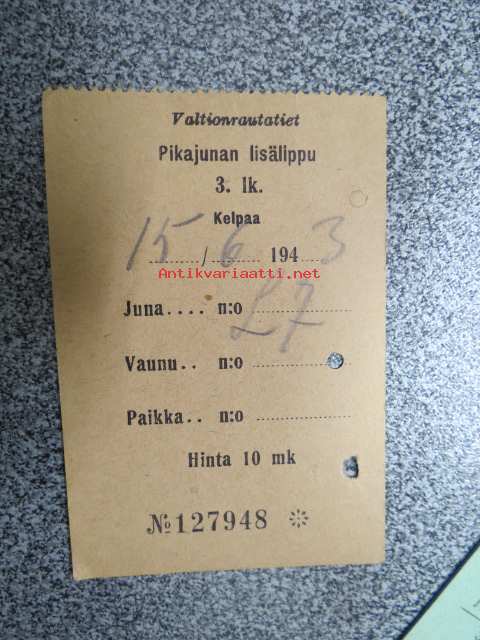 Valtionrautatiet
Pikajunan lisälippu
3. lk.
Kelpaa
15 / 6 194 3
Antikvariaatti.net
Juna.... n:o 27
Vaunu.. n:o
Paikka.. n:o
Hinta 10 mk
№ 127948 ※